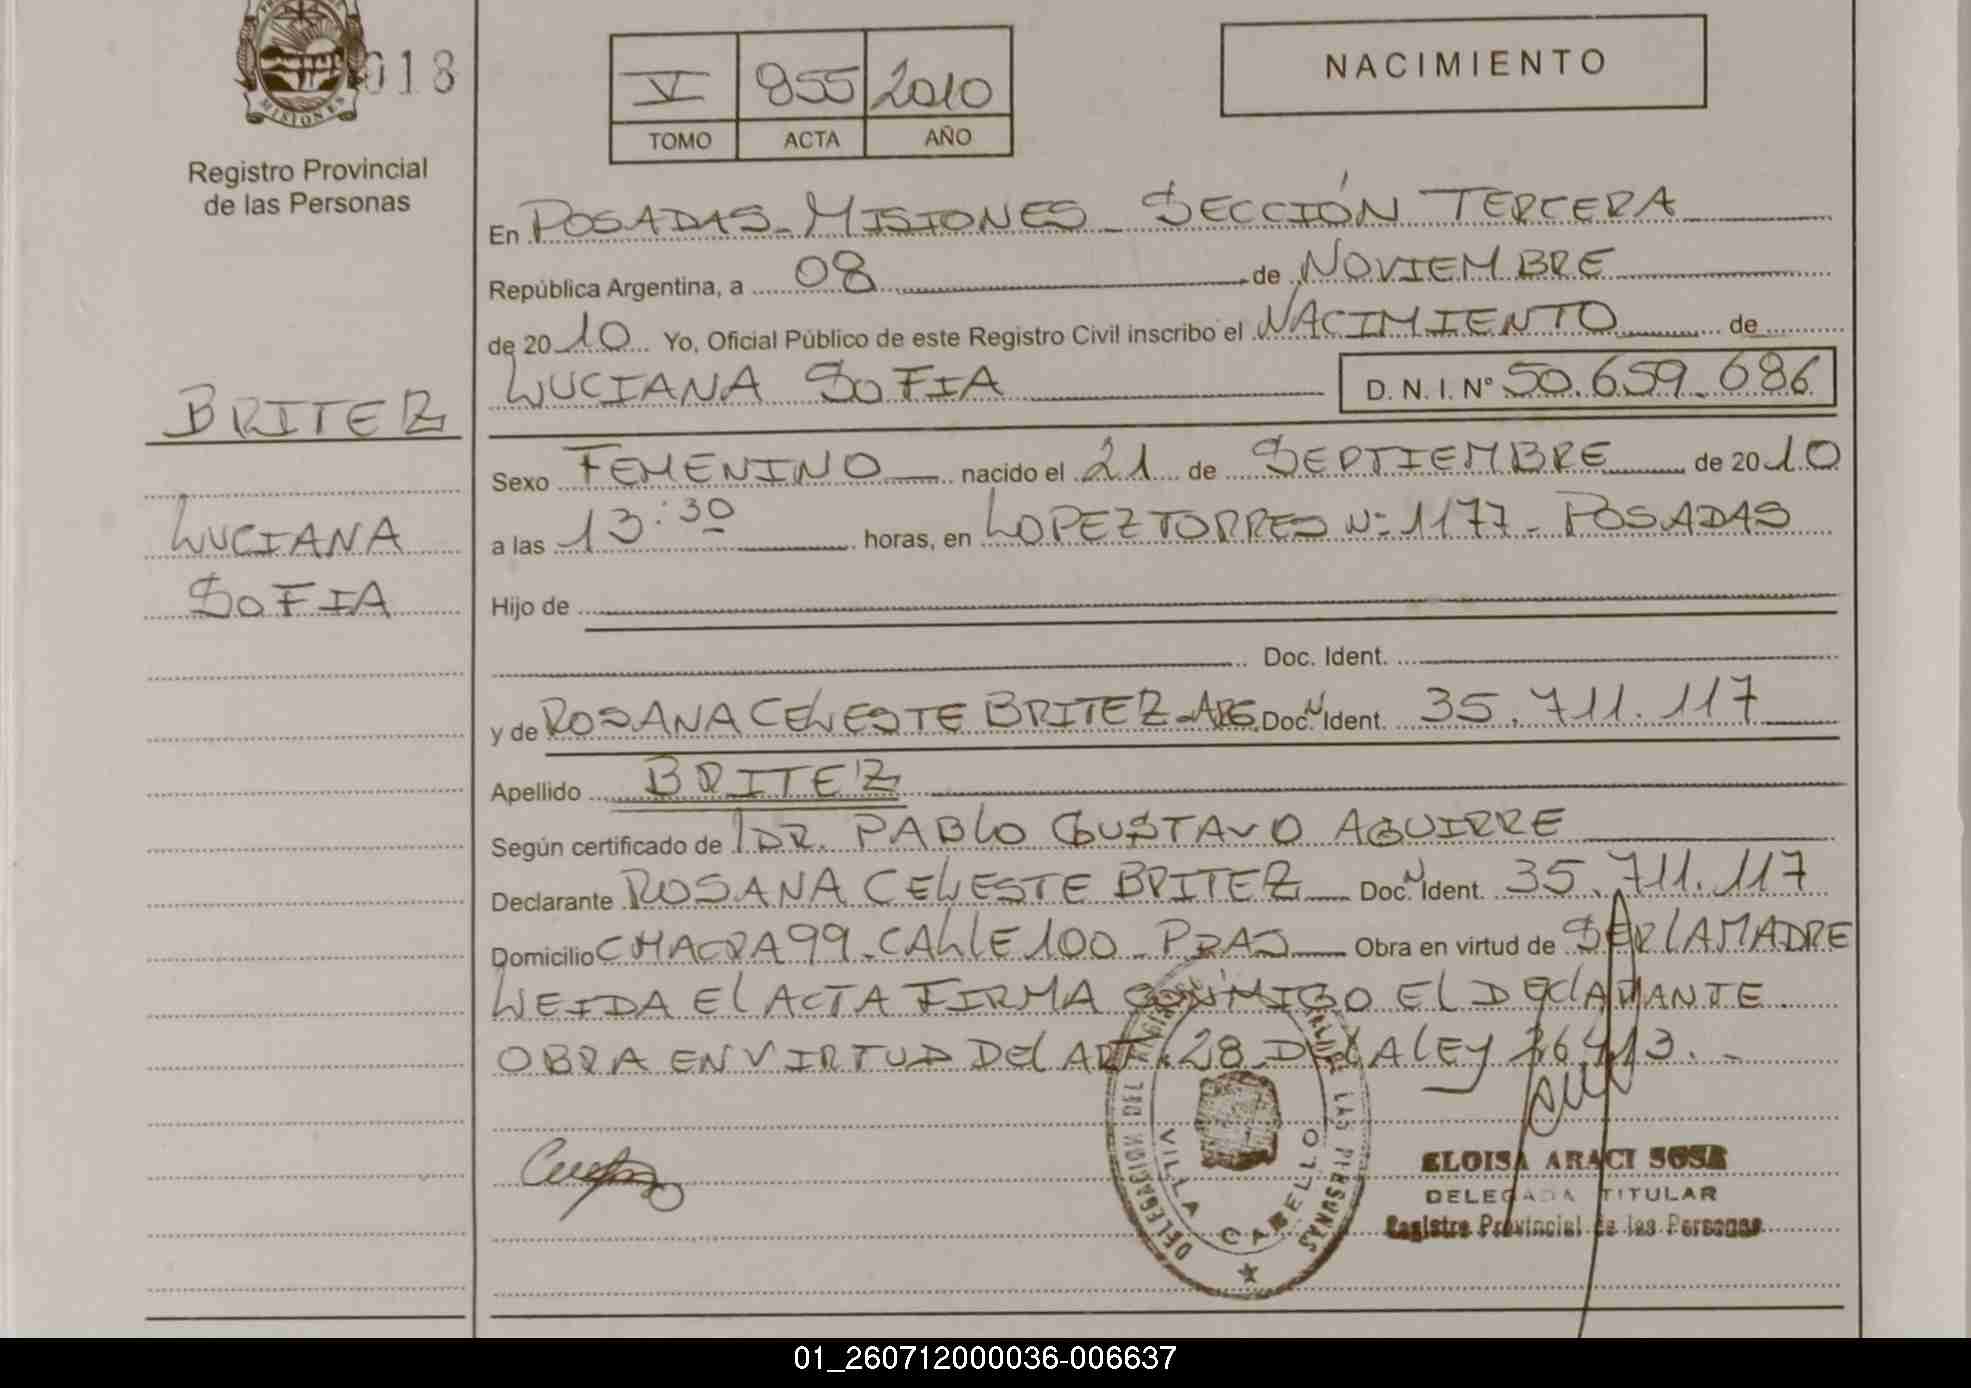 MISIONES
018
Registro Provincial
de las Personas
BRITEZ
LUCIANA
SOFIA
V 855 2010
TOMO ACTA AÑO
NACIMIENTO
En POSADAS - MISIONES - SECCIÓN TERCERA
República Argentina, a 08 de NOVIEMBRE
de 2010 Yo, Oficial Público de este Registro Civil inscribo el NACIMIENTO de
LUCIANA SOFIA D. N. I. Nº 50.659.686
Sexo FEMENINO nacido el 21 de SEPTIEMBRE de 2010
a las 13:30 horas, en LOPEZ TORRES Nº 1177 - POSADAS
Hijo de
Doc. Ident.
y de ROSANA CELESTE BRITEZ - ARG. Doc. N Ident. 35.711.117
Apellido BRITEZ
Según certificado de DR. PABLO GUSTAVO AGUIRRE
Declarante ROSANA CELESTE BRITEZ Doc. N Ident. 35.711.117
Domicilio CHACRA 99 - CALLE 100 - PDAS Obra en virtud de SER LA MADRE
LEIDA El ACTA FIRMA CONMIGO EL DEClARANTE
OBRA EN VIRTUD DEl ART. 28 DE LA LEY 26413. -
DELEGACION DEL REGISTRO LAS PERSONAS
VILLA CABELLO
ELOISA ARACI SOSA
DELEGADA TITULAR
Registro Provincial de las Personas
01_260712000036-006637